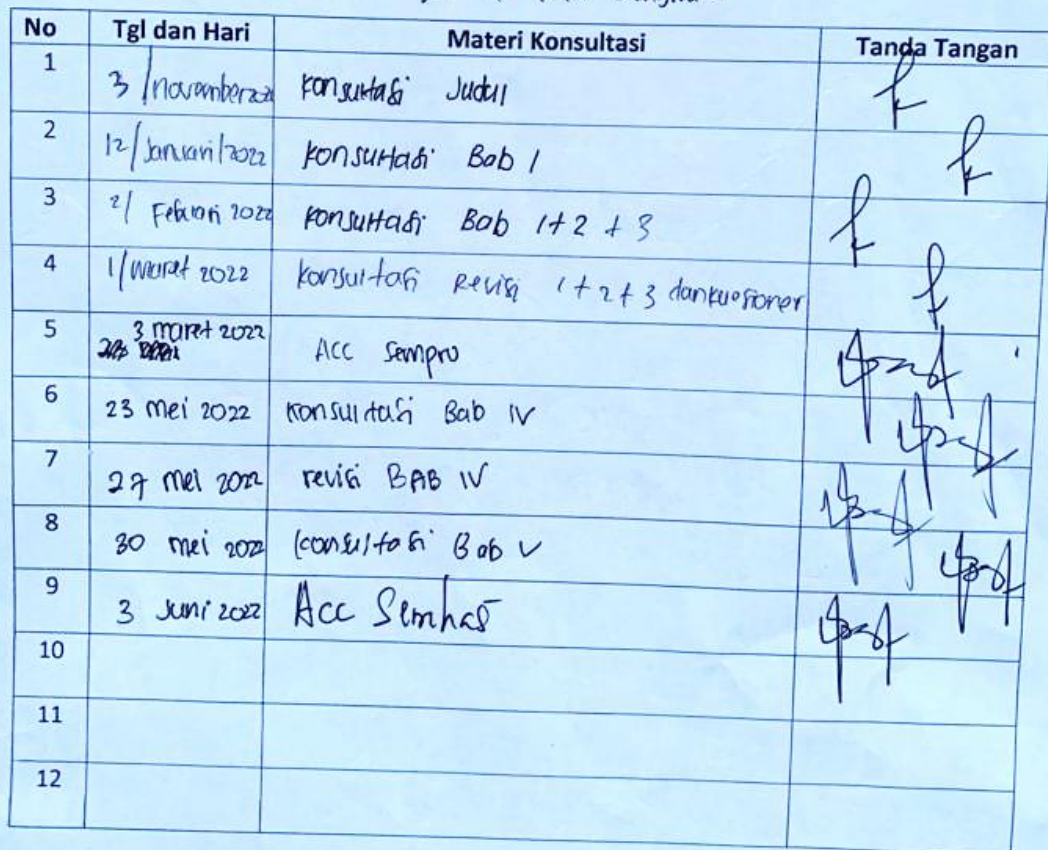 No Tgl dan Hari Materi Konsultasi Tanda Tangan
1 3/november Konsultasi Judul
2 12/Januari/2022 Konsultasi Bab 1
3 2/ Februari 2022 Konsultasi Bab 1+2+3
4 1/maret 2022 Konsultasi Revisi 1+2+3 dan kuesioner
5 3 maret 2022 ACC Sempro
6 23 mei 2022 Konsultasi Bab IV
7 27 mei 2022 revisi BAB IV
8 30 mei 2022 Konsultasi Bab V
9 3 Juni 2022 Acc Semhas
10
11
12